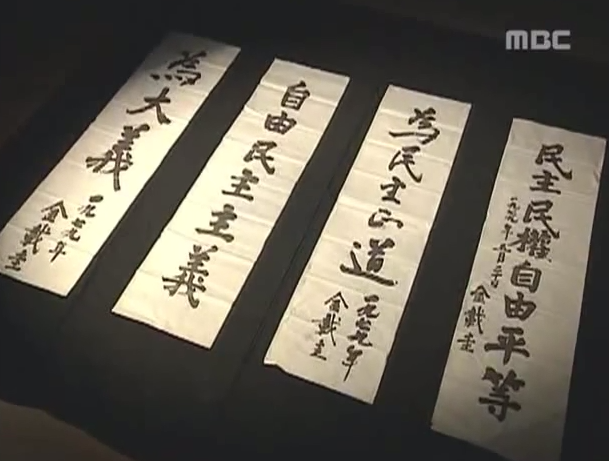 MBC
為大義
一九七九年
金載圭
自由民主主義
為民主正道
一九七九年
金載圭
民主民權自由平等
一九七九年
金載圭